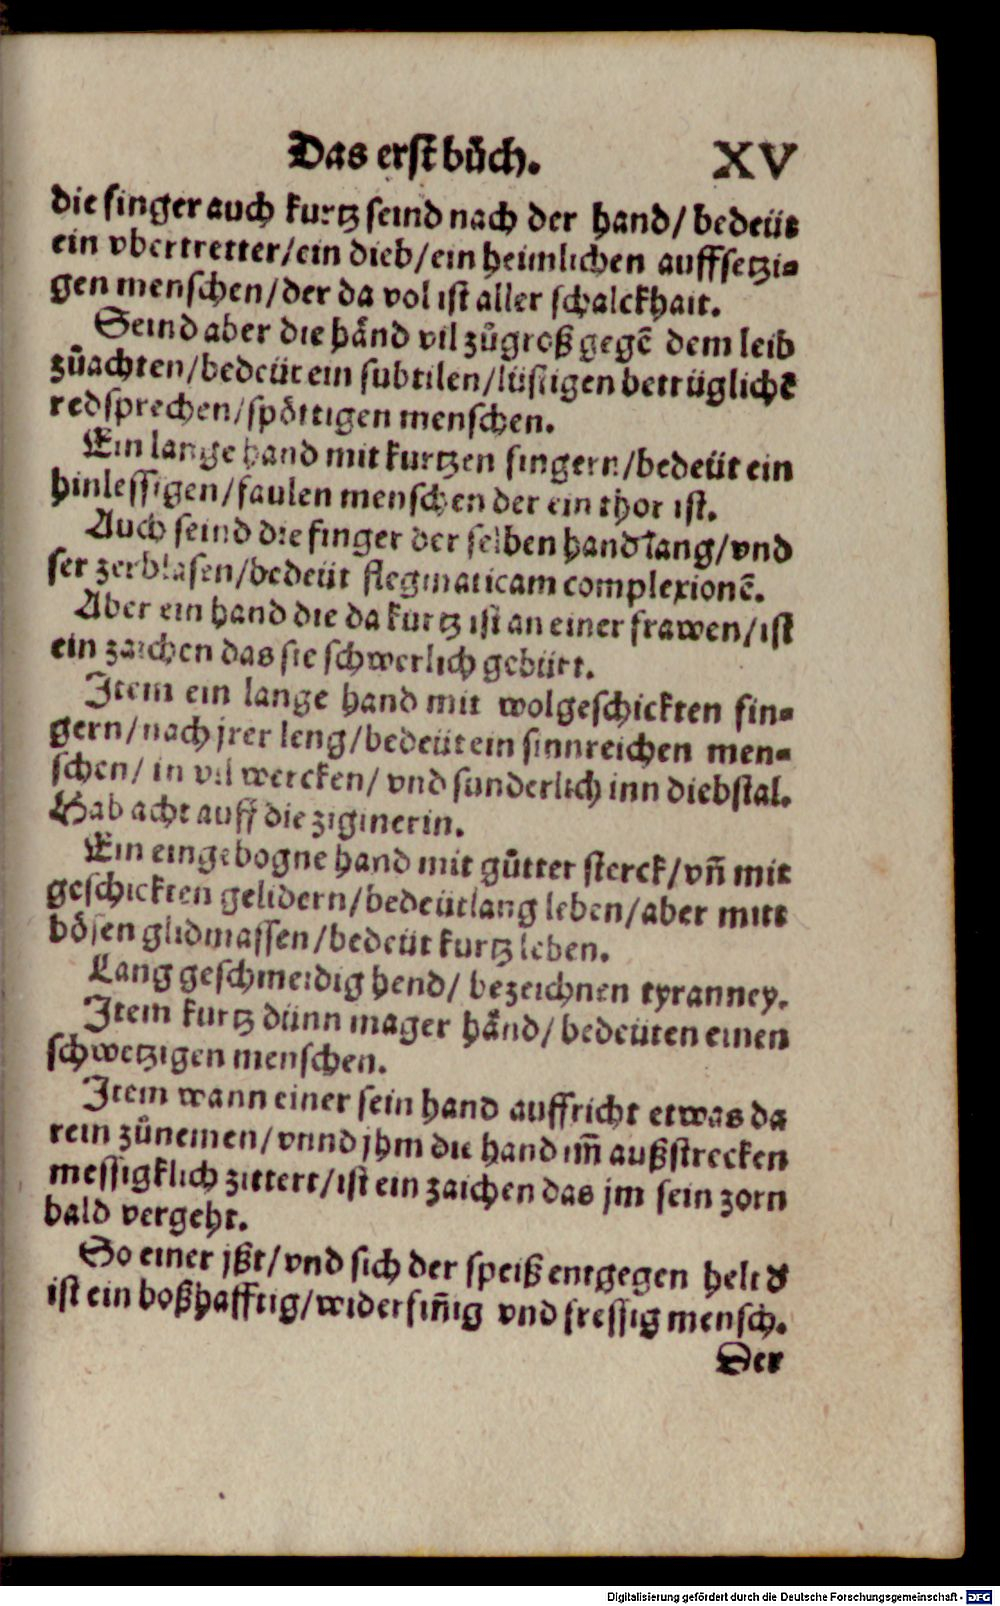 Das erst bůch. XV
die finger auch kurtz seind nach der hand/ bedeüt
ein vbertretter/ein dieb/ein heimlichen auffsetzi-
gen menschen/der da vol ist aller schalckhait.
Seind aber die hånd vil zůgroß gegē dem leib
zůachten/bedeüt ein subtilen/lüstigen betrüglichē
redsprechen/spöttigen menschen.
Ein lange hand mit kurtzen fingern/bedeüt ein
hinlessigen/faulen menschen der ein thor ist.
Auch seind die finger der selben hand lang/vnd
ser zerblasen/bedeüt flegmaticam complexionē.
Aber ein hand die da kurtz ist an einer frawen/ist
ein zaichen das sie schwerlich gebürt.
Item ein lange hand mit wolgeschickten fin-
gern/nach jrer leng/bedeüt ein sinnreichen men-
schen/ in vil wercken/ vnd sunderlich inn diebstal.
Hab acht auff die ziginerin.
Ein eingebogne hand mit gůtter sterck/vñ mit
geschickten gelidern/bedeüt lang leben/aber mitt
bösen glidmassen/bedeüt kurtz leben.
Lang geschmeidig hend/ bezeichnen tyranney.
Item kurtz dünn mager hånd/ bedeüten einen
schwetzigen menschen.
Item wann einer sein hand auffricht etwas da
rein zůnemen/vnnd jhm die hand im̄ außstrecken
messigklich zittert/ist ein zaichen das jm sein zorn
bald vergeht.
So einer jßt/vnd sich der speiß entgegen helt d'
ist ein boßhafftig/widersiñig vnd fressig mensch.
Der
Digitalisierung gefördert durch die Deutsche Forschungsgemeinschaft - DFG